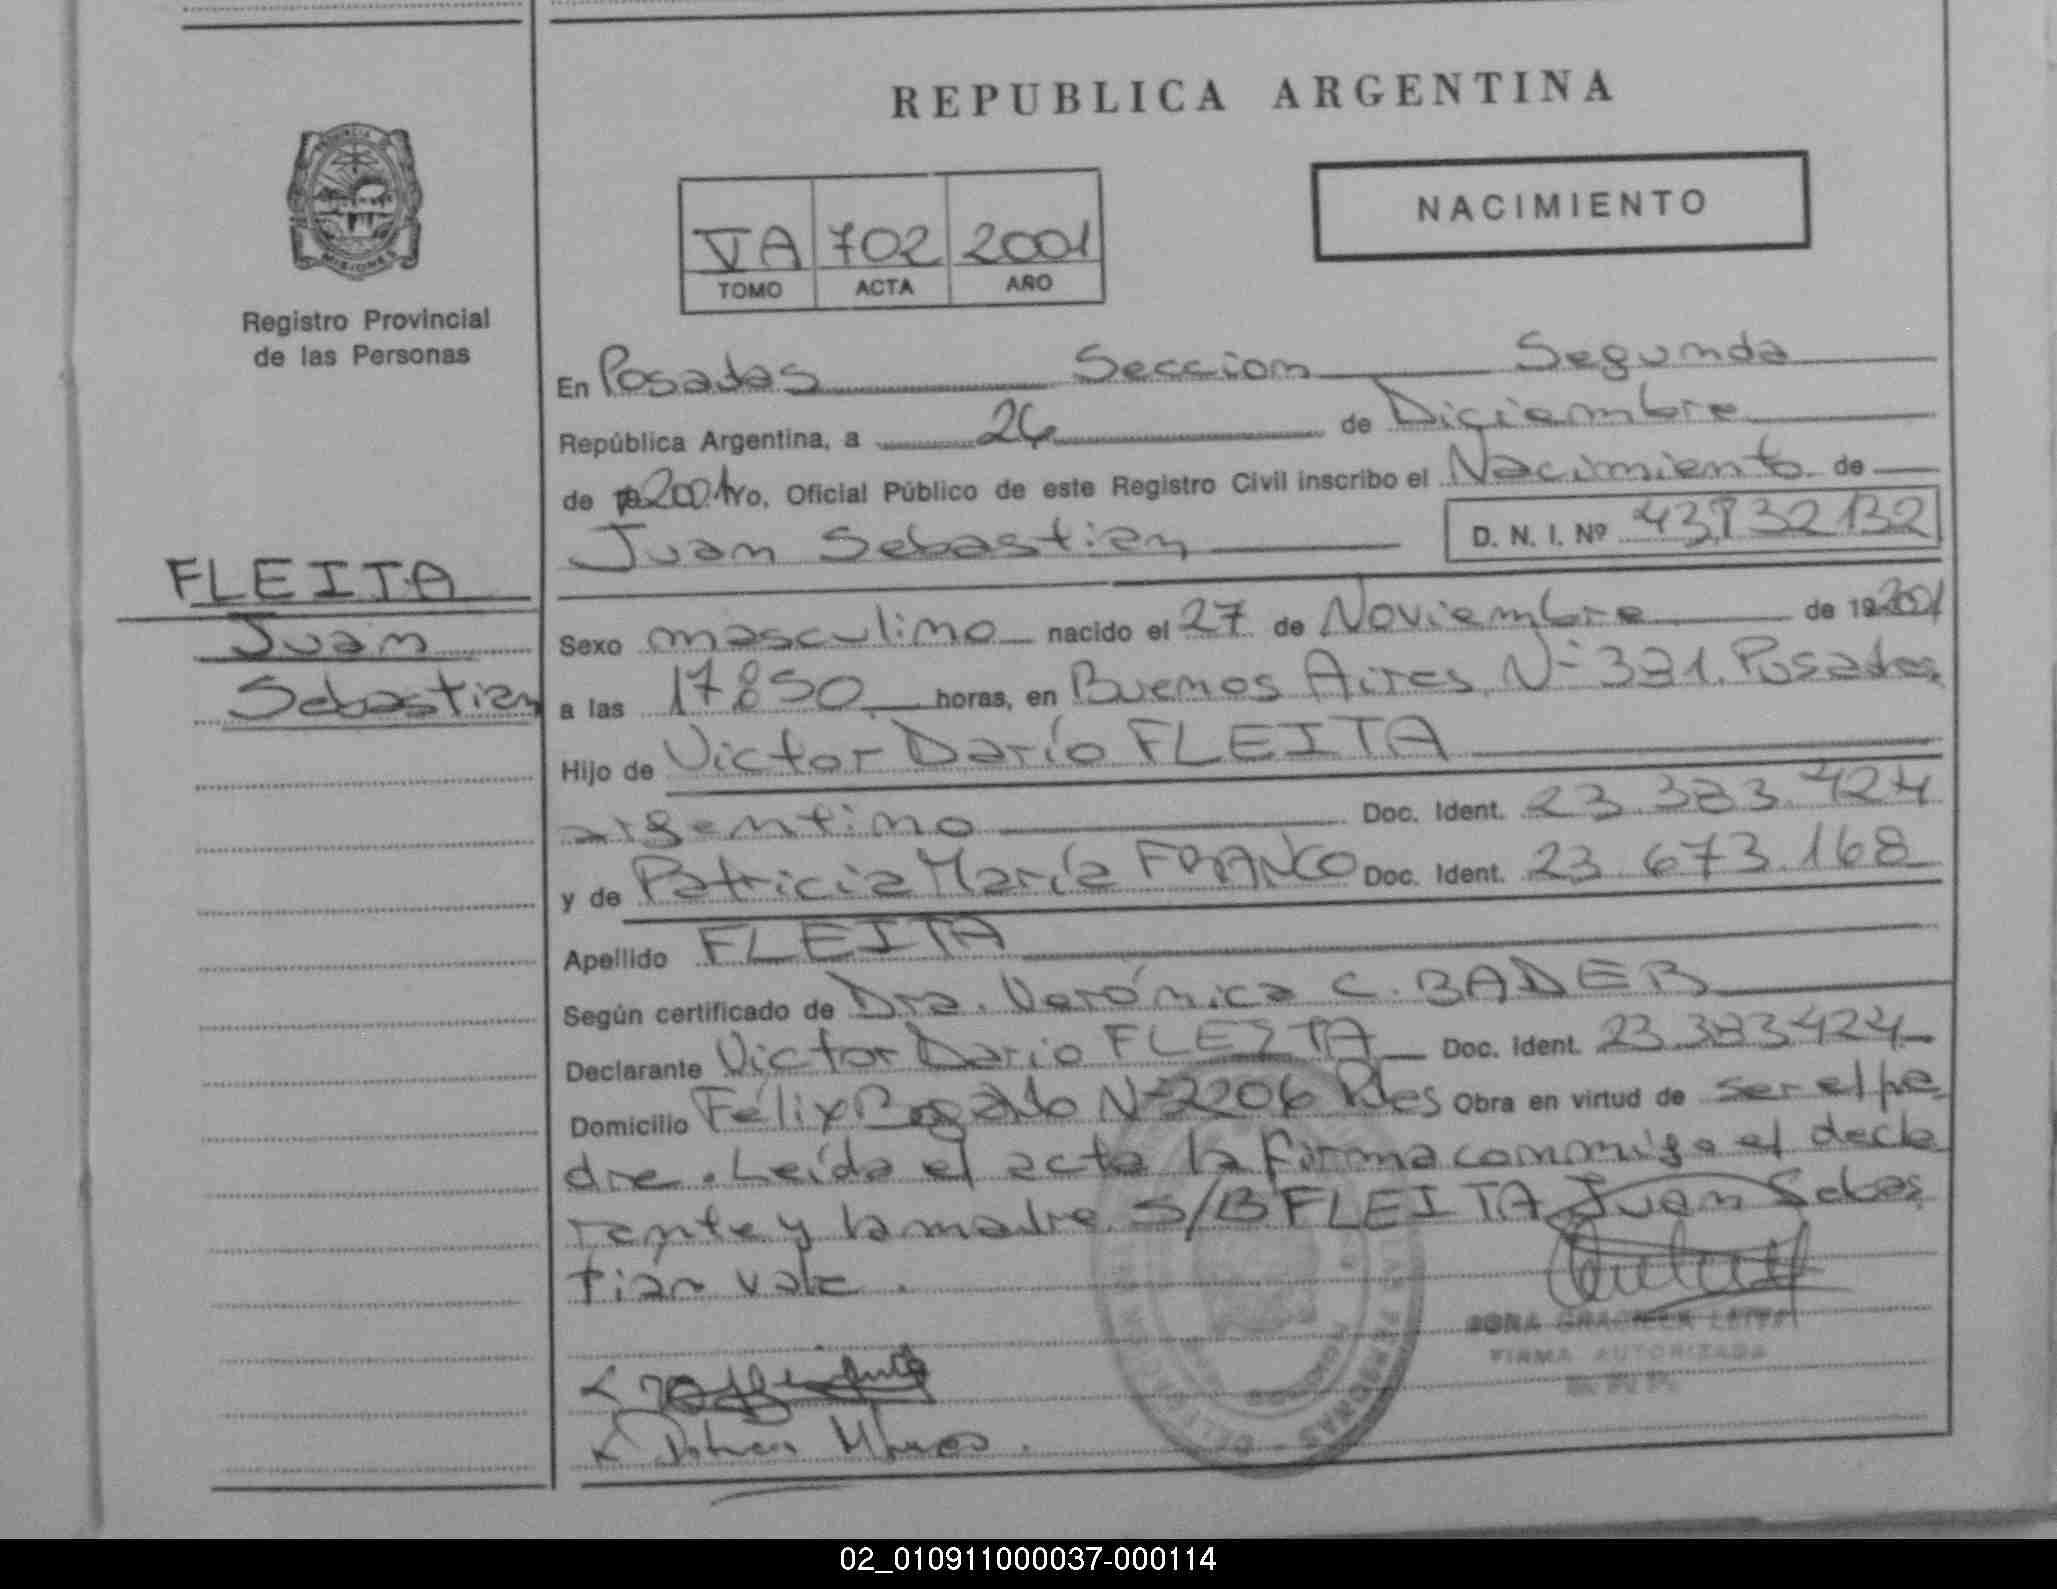 REPUBLICA ARGENTINA
PROVINCIA
MISIONES
Registro Provincial
de las Personas
VA 702 2001
TOMO ACTA AÑO
NACIMIENTO
En Posadas Seccion Segunda
República Argentina, a 26 de Diciembre
de 2001 yo, Oficial Público de este Registro Civil inscribo el Nacimiento de
Juan Sebastian D. N. I. Nº
FLEITA
Juan
Sebastian
Sexo masculino nacido el 27 de Noviembre de 2001
a las 17:50 horas, en Buenos Aires Nº 331. Posadas
Hijo de Victor Darío FLEITA
argentino Doc. Ident. 23.383.424
y de Patricia María FRANCO Doc. Ident. 23.673.168
Apellido FLEITA
Según certificado de Dra. Verónica C. BADER
Declarante Victor Dario FLEITA Doc. Ident. 23.383.424
Domicilio Félix Bogado Nº 2206 Pdas Obra en virtud de ser el pa
dre. Leída el acta la firma conmigo el decla
rante y la madre S/B FLEITA Juan Sebas
tián vale.
GRACIELA
FIRMA AUTORIZADA
02_010911000037-000114